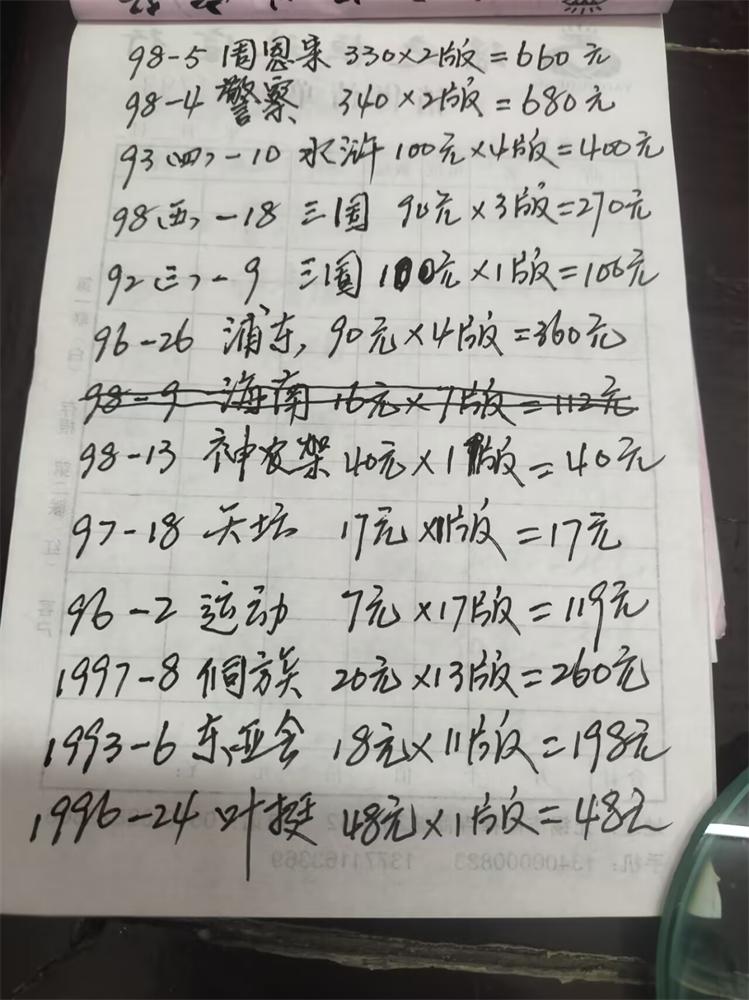 98-5 周恩来 330×2版=660元
98-4 警察 340×2版=680元
93(四)-10 水浒 100元×4版=400元
98(西)-18 三国 90元×3版=270元
92(三)-9 三国 100元×1版=100元
96-26 浦东, 90元×4版=360元
98-9 海南 16元×7版=112元
98-13 神农架 40元×1版=40元
97-18 天坛 17元×1版=17元
96-2 运动 7元×17版=119元
1997-8 侗族 20元×13版=260元
1993-6 东亚会 18元×11版=198元
1996-24 叶挺 48元×1版=48元